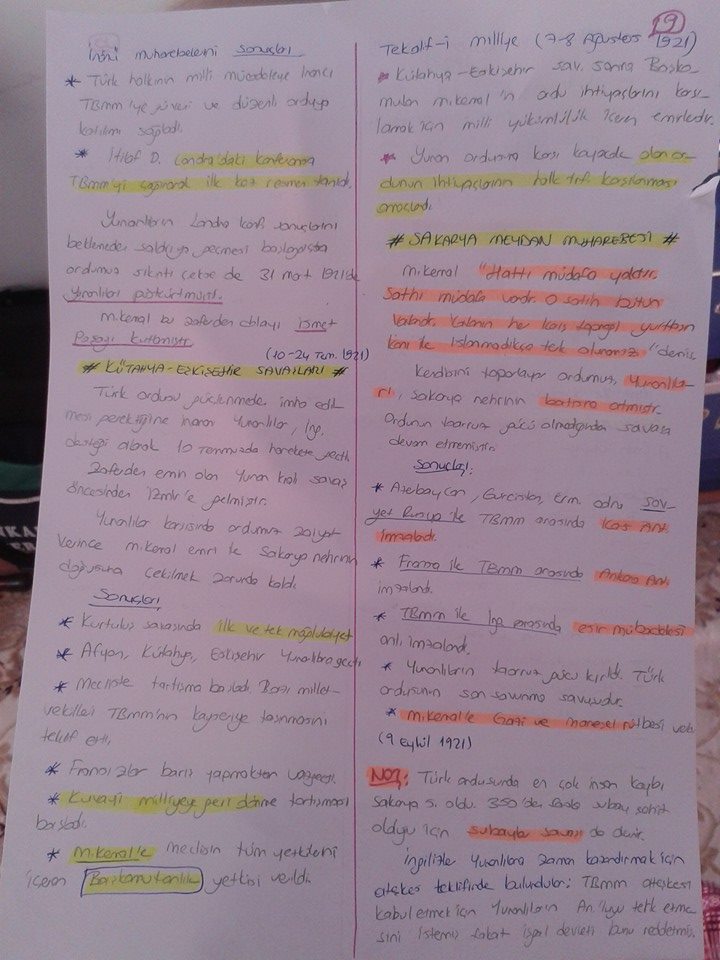 İnönü muharebelerini sonuçları
* Türk halkının milli mücadeleye inancı
TBMM'ye güveni ve düzenli orduya
katılımı sağladı.
* İtilaf D. Londra'daki konferansa
TBMM'yi çağırarak ilk kez resmen tanıdı.
Yunanlıların Londra konf. sonuçlarını
beklemeden saldırıya geçmesi başlangıçta
ordumuz sıkıntı çekse de 31 mart 1921'de
Yunanlıları püskürtmüştü.
M.kemal bu zaferden dolayı İsmet
Paşayı kutlamıştır.
(10-24 Tem. 1921)
# KÜTAHYA-ESKİŞEHİR SAVAŞLARI #
Türk ordusu güçlenmeden imha edil
mesi gerektiğine inanan Yunanlılar, İng.
desteği alarak 10 Temmuzda harekete geçti.
Zaferden emin olan Yunan kralı savaş
öncesinden İzmir'e gelmiştir.
Yunanlılar karşısında ordumuz zaiyat
verince m.kemal emri ile Sakarya nehrinin
doğusuna çekilmek zorunda kaldı.
Sonuçları
* Kurtuluş savaşında ilk ve tek mağlubiyet
* Afyon, Kütahya, Eskişehir Yunanlılara geçti
* Mecliste tartışma başladı. Bazı millet-
vekilleri TBMM'nin kayseriye taşınmasını
teklif etti.
* Fransızlar barış yapmaktan vazgeçti.
* Kuvayi milliyeye geri dönme tartışması
başladı.
* M.Kemal'e meclisin tüm yetkilerini
içeren Başkomutanlık yetkisi verildi.
9
Tekalif-i milliye (7-8 Ağustos 1921)
* Kütahya-Eskişehir sav. sonra Başko
mutan m.kemal'in ordu ihtiyaçlarını karşı-
lamak için milli yükümlülük içeren emirledir.
* Yunan ordusuna karşı kayacak olan or-
dunun ihtiyaçlarının halk trf. karşılanması
amaçladı.
# SAKARYA MEYDAN MUHAREBESİ #
M.kemal "Hattı müdafa yoktur.
Sathı müdafa vardır. O satıh bütün
vatandır. Vatanın her karış toprağı, yurttaşın
kanı ile ıslanmadıkça terk olunamaz" demiş.
Kendisini toparlayan ordumuz, Yunanlıla-
rı, Sakarya nehrinin batısına atmıştır.
Ordunun taarruz gücü olmadığından savaşa
devam etmemiştir.
Sonuçları:
* Azerbaycan, Gürcistan, Erm. adına Sov-
yet Rusya ile TBMM arasında Kars Ant.
imzaladı.
* Fransa ile TBMM arasında Ankara Ant
imzalandı.
* TBMM ile İng arasında esir mübadelesi
ant. imzalandı.
* Yunanlıların taarruz gücü kırıldı. Türk
ordusunun son savunma savaşıdır.
* M.kemal'e Gazi ve mareşal rütbesi veb.
(9 Eylül 1921)
NOT: Türk ordusunda en çok insan kaybı
Sakarya s. oldu. 350'den fazla subay şehit
olduğu için subaylar savaşı da denir.
İngilizler Yunanlılara zaman kazandırmak için
ateşkes teklifinde bulundular; TBMM ateşkesi
kabul etmek için Yunanlıların An.'luyu terk etme
sini istemiş fakat işgal devleti bunu reddetmiş.